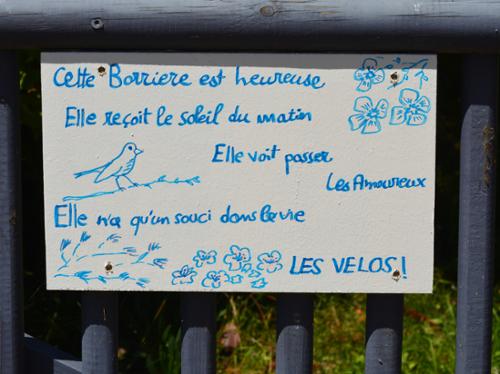 Cette Barriere est heureuse
Elle reçoit le soleil du matin
Elle voit passer
Les Amoureux
Elle n'a qu'un souci dans la vie
LES VELOS!